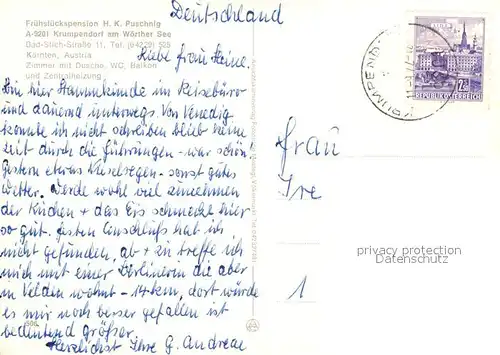 Deutschland
Frühstückspension H. K. Puschnig
A-9201 Krumpendorf am Wörther See
Bad-Stich-Straße 11, Tel. (04229) 525
Kärnten, Austria
Zimmer mit Dusche, WC, Balkon
und Zentralheizung
Liebe Frau Heine.
Bin hier Stammkunde im Reisebüro
und dauernd unterwegs. Von Venedig
konnte ich nicht schreiben blieb keine
Zeit durch die Führungen - war schön!
Gestern etwas Nieselregen - sonst gutes
Wetter. Werde wohl viel zunehmen
der Kuchen + das Eis schmeckt hier
so gut. festen Anschluss hab ich
nicht gefunden, ab + zu treffe ich
mich mit einer Berlinerin die aber
in Velden wohnt - 14 km, dort würde
es mir noch besser gefallen ist
bedeutend größer.
Herzlichst Ihre G. Andreae
KRUMPEND
REPUBLIK ÖSTERREICH
Frau
Ire
1
privacy protection
DATENSCHUTZ